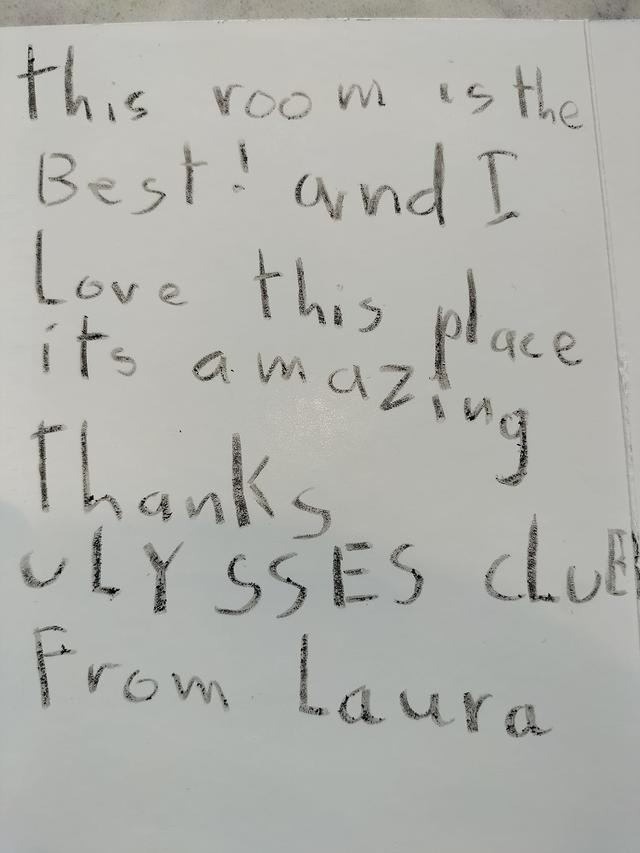 this room is the
Best! and I
Love this place
its amazing
Thanks
ULYSSES CLUB
From Laura